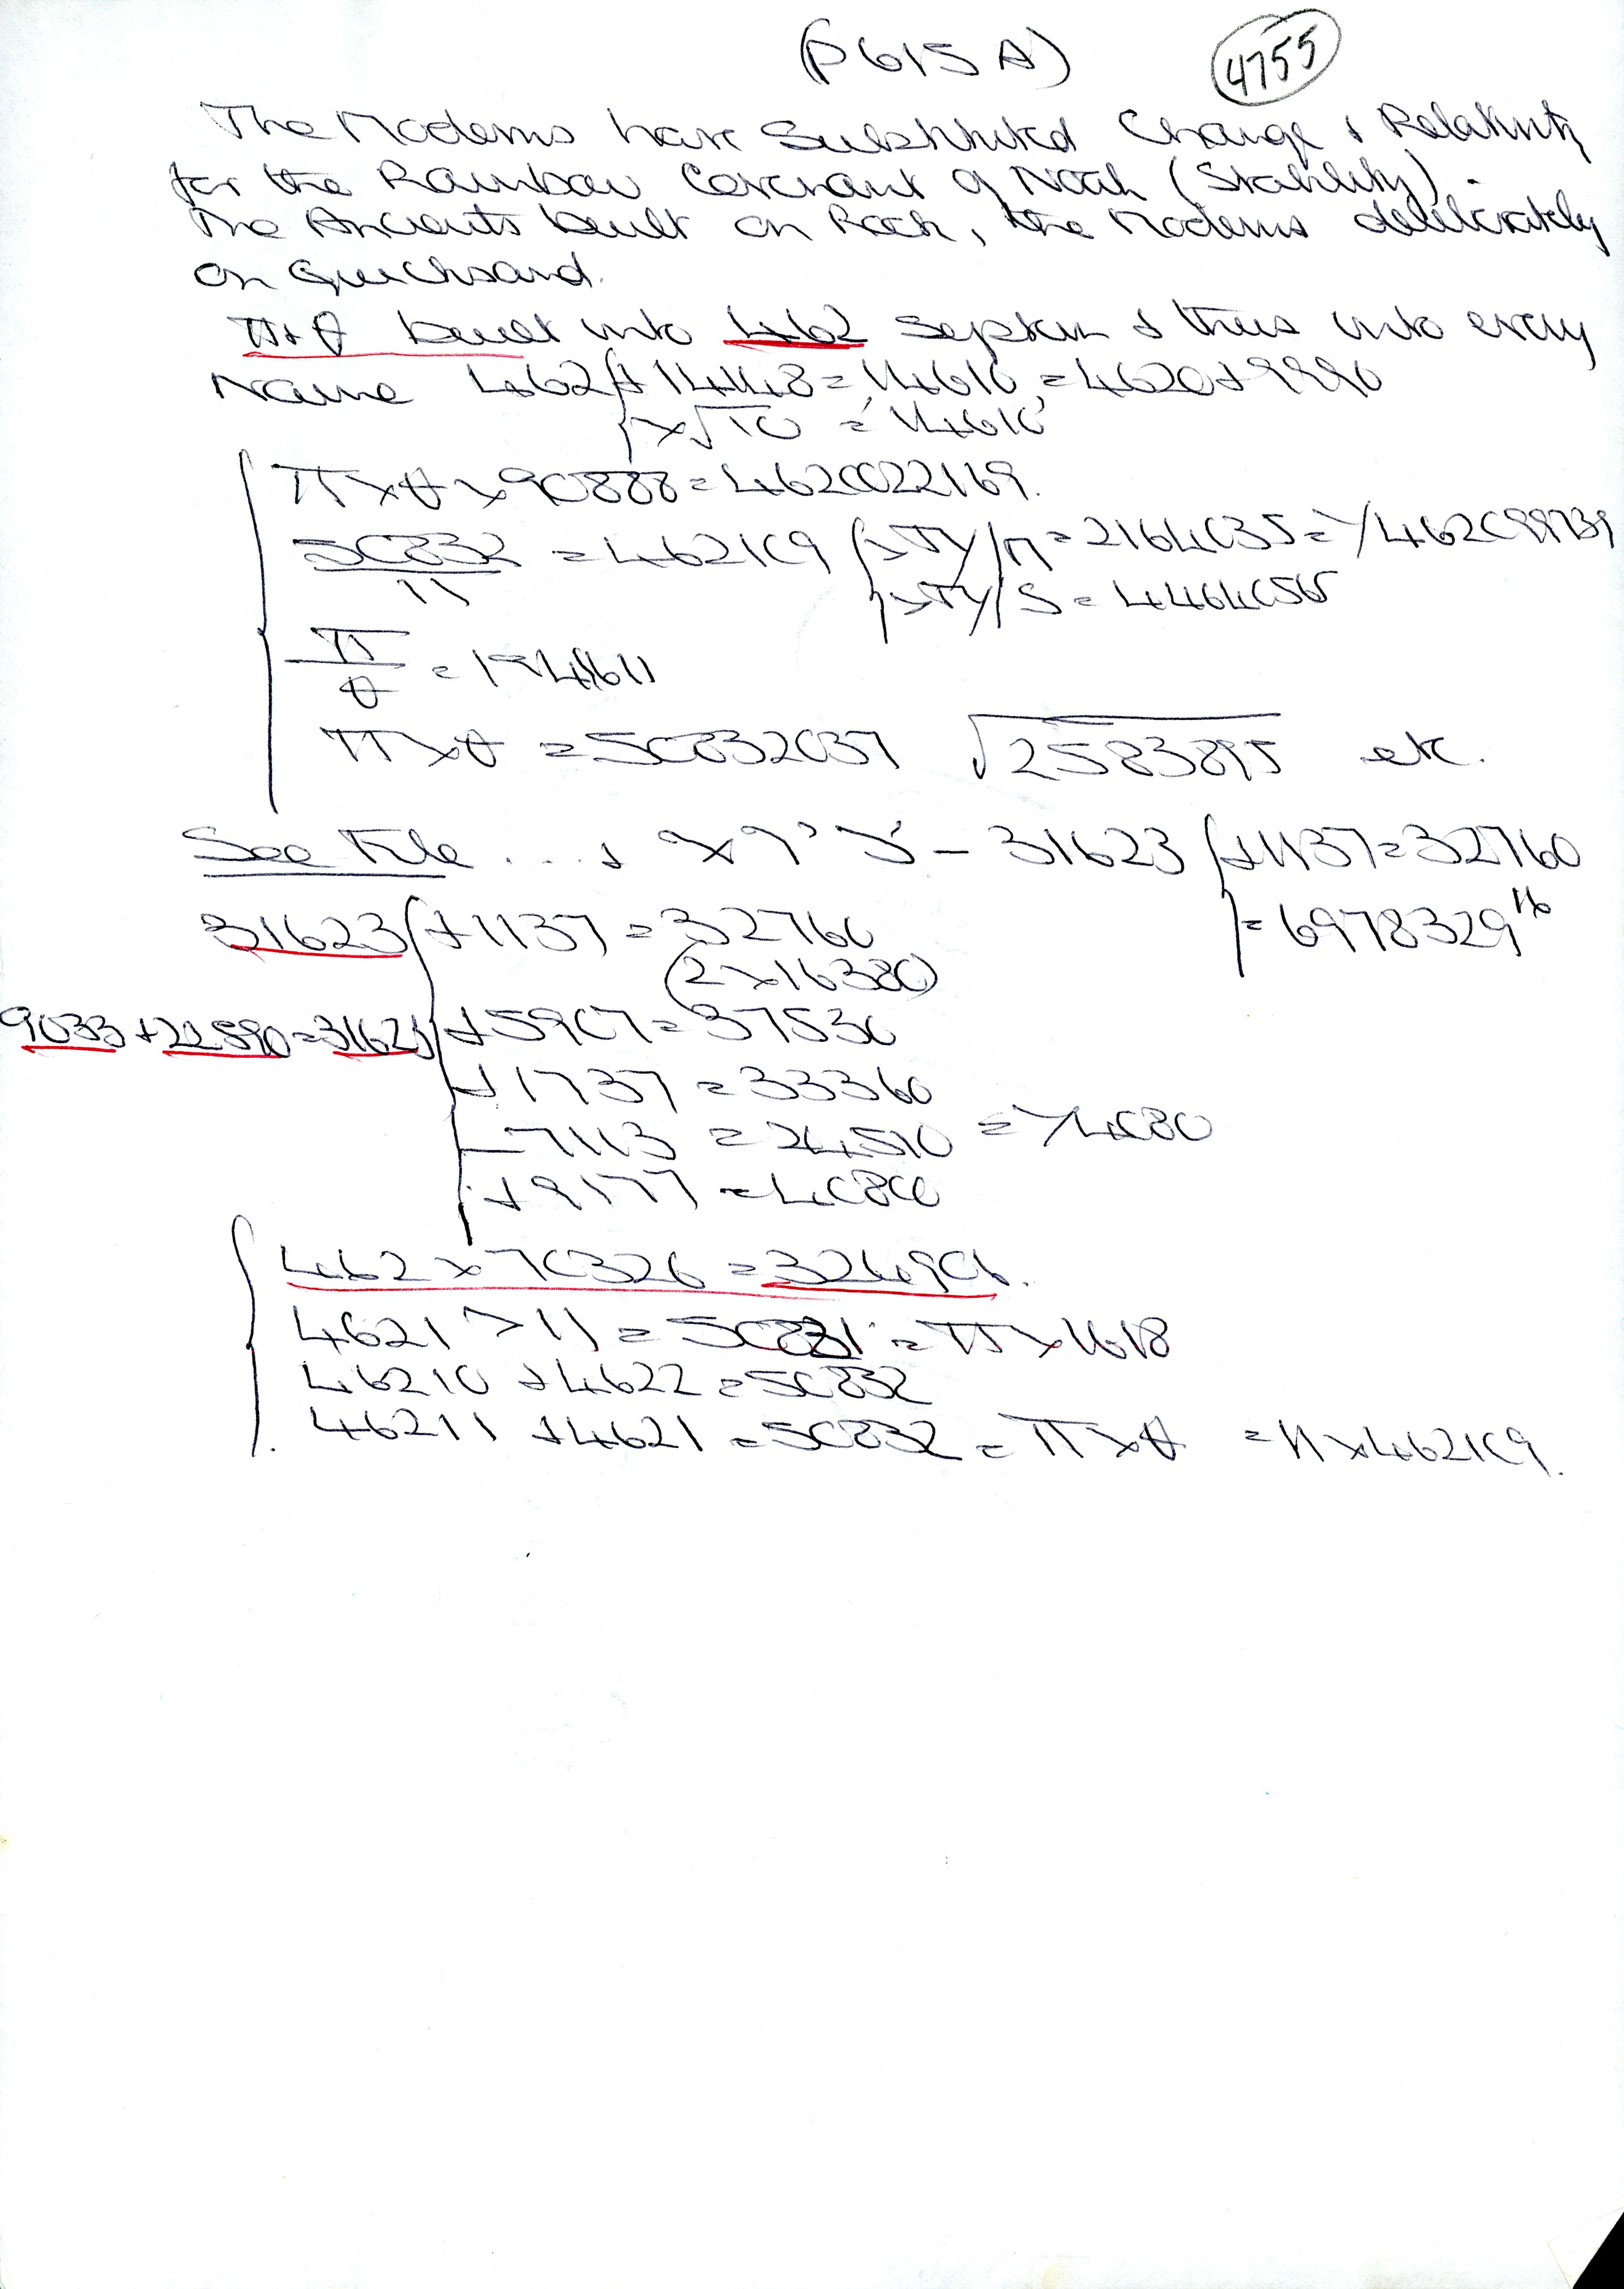 (P615A) 4755
The Moderns have Substituted Change & Relativity
for the Rainbow Covenant of Noah (Stability).
The Ancients built on Rock, the Moderns deliberately
on Quicksand.
π & θ built into 462 system & thus into every
Name 462 { + 14148 = 14610 = 4620 + 9990
× √10 = 14610
π × θ × 90888 = 462022169.
50832 / 11 = 462109 { × Ty/π = 2164035 = Y462099739
× Ty/S = 4464056
π / θ = 194161
π × θ = 50832037 √2583895 etc.
See File ... & 31623 { + 1137 = 32760
31623 { + 1137 = 32760 = 6978329 ¹⁶
(2 × 16380)
9033 + 22590 = 31623 + 5907 = 37530
+ 1737 = 33360
- 7113 = 24510 = Y4080
+ 9177 = 40800
462 × 70326 = 324906.
4621 > 11 = 50831 = π × 1618
46210 + 4622 = 50832
46211 + 4621 = 50832 = π × θ = 11 × 462109.